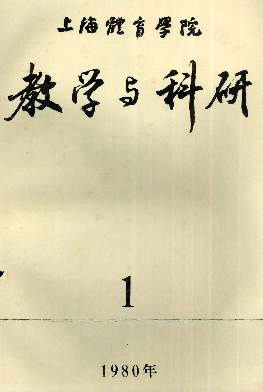 上海體育學院
教学与科研
1
1980年